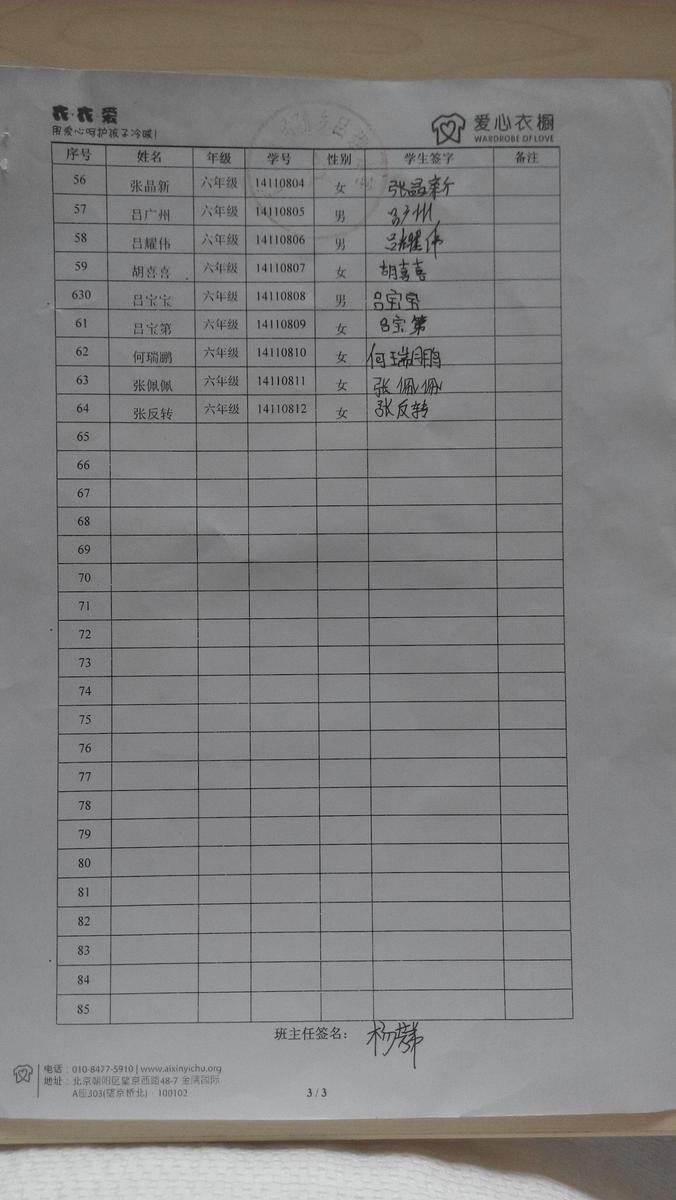 衣·衣·爱
用爱心呵护孩子冷暖!
爱心衣橱
WARDROBE OF LOVE
序号 姓名 年级 学号 性别 学生签字 备注
56 张晶新 六年级 14110804 女 张晶新
57 吕广州 六年级 14110805 男 吕广州
58 吕耀伟 六年级 14110806 男 吕耀伟
59 胡喜喜 六年级 14110807 女 胡喜喜
630 吕宝宝 六年级 14110808 男 吕宝宝
61 吕宝第 六年级 14110809 女 吕宝第
62 何瑞鹏 六年级 14110810 女 何瑞鹏
63 张佩佩 六年级 14110811 女 张佩佩
64 张反转 六年级 14110812 女 张反转
65
66
67
68
69
70
71
72
73
74
75
76
77
78
79
80
81
82
83
84
85
班主任签名:
电话:010-8477-5910 | www.aixinyichu.org
地址:北京朝阳区望京西路48-7 金隅国际
A座303(望京桥北)·100102
3 / 3